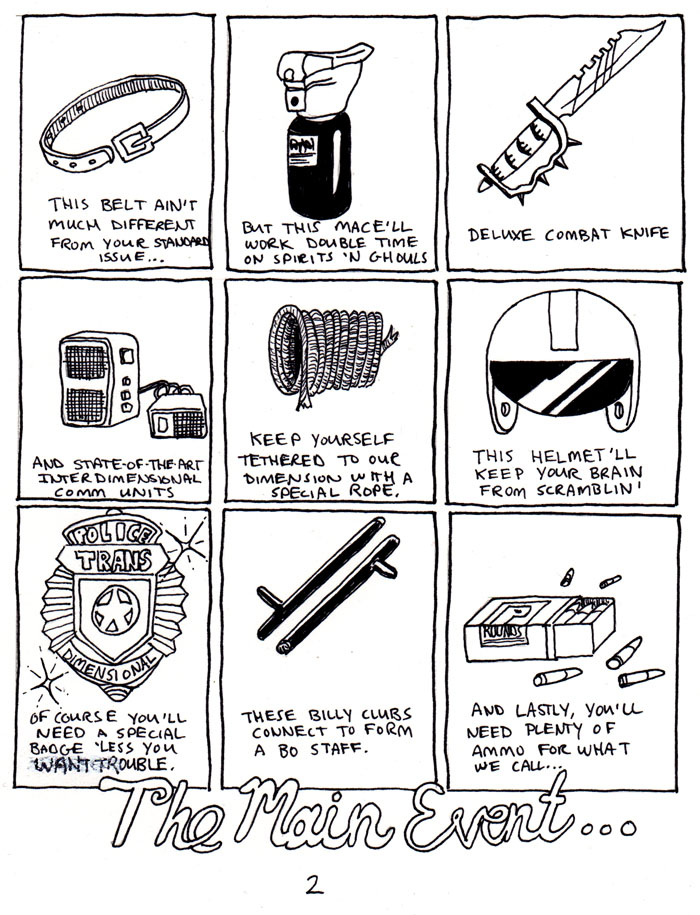 THIS BELT AIN'T
MUCH DIFFERENT
FROM YOUR STANDARD
ISSUE...
BUT THIS MACE'LL
WORK DOUBLE TIME
ON SPIRITS 'N GHOULS
DELUXE COMBAT KNIFE
AND STATE-OF-THE-ART
INTERDIMENSIONAL
COMM UNITS
KEEP YOURSELF
TETHERED TO OUR
DIMENSION WITH A
SPECIAL ROPE.
THIS HELMET'LL
KEEP YOUR BRAIN
FROM SCRAMBLIN'
POLICE
TRANS
DIMENSIONAL
OF COURSE YOU'LL
NEED A SPECIAL
BADGE 'LESS YOU
WANT TROUBLE.
THESE BILLY CLUBS
CONNECT TO FORM
A BO STAFF.
ROUNDS
AND LASTLY, YOU'LL
NEED PLENTY OF
AMMO FOR WHAT
WE CALL...
The Main Event...
2